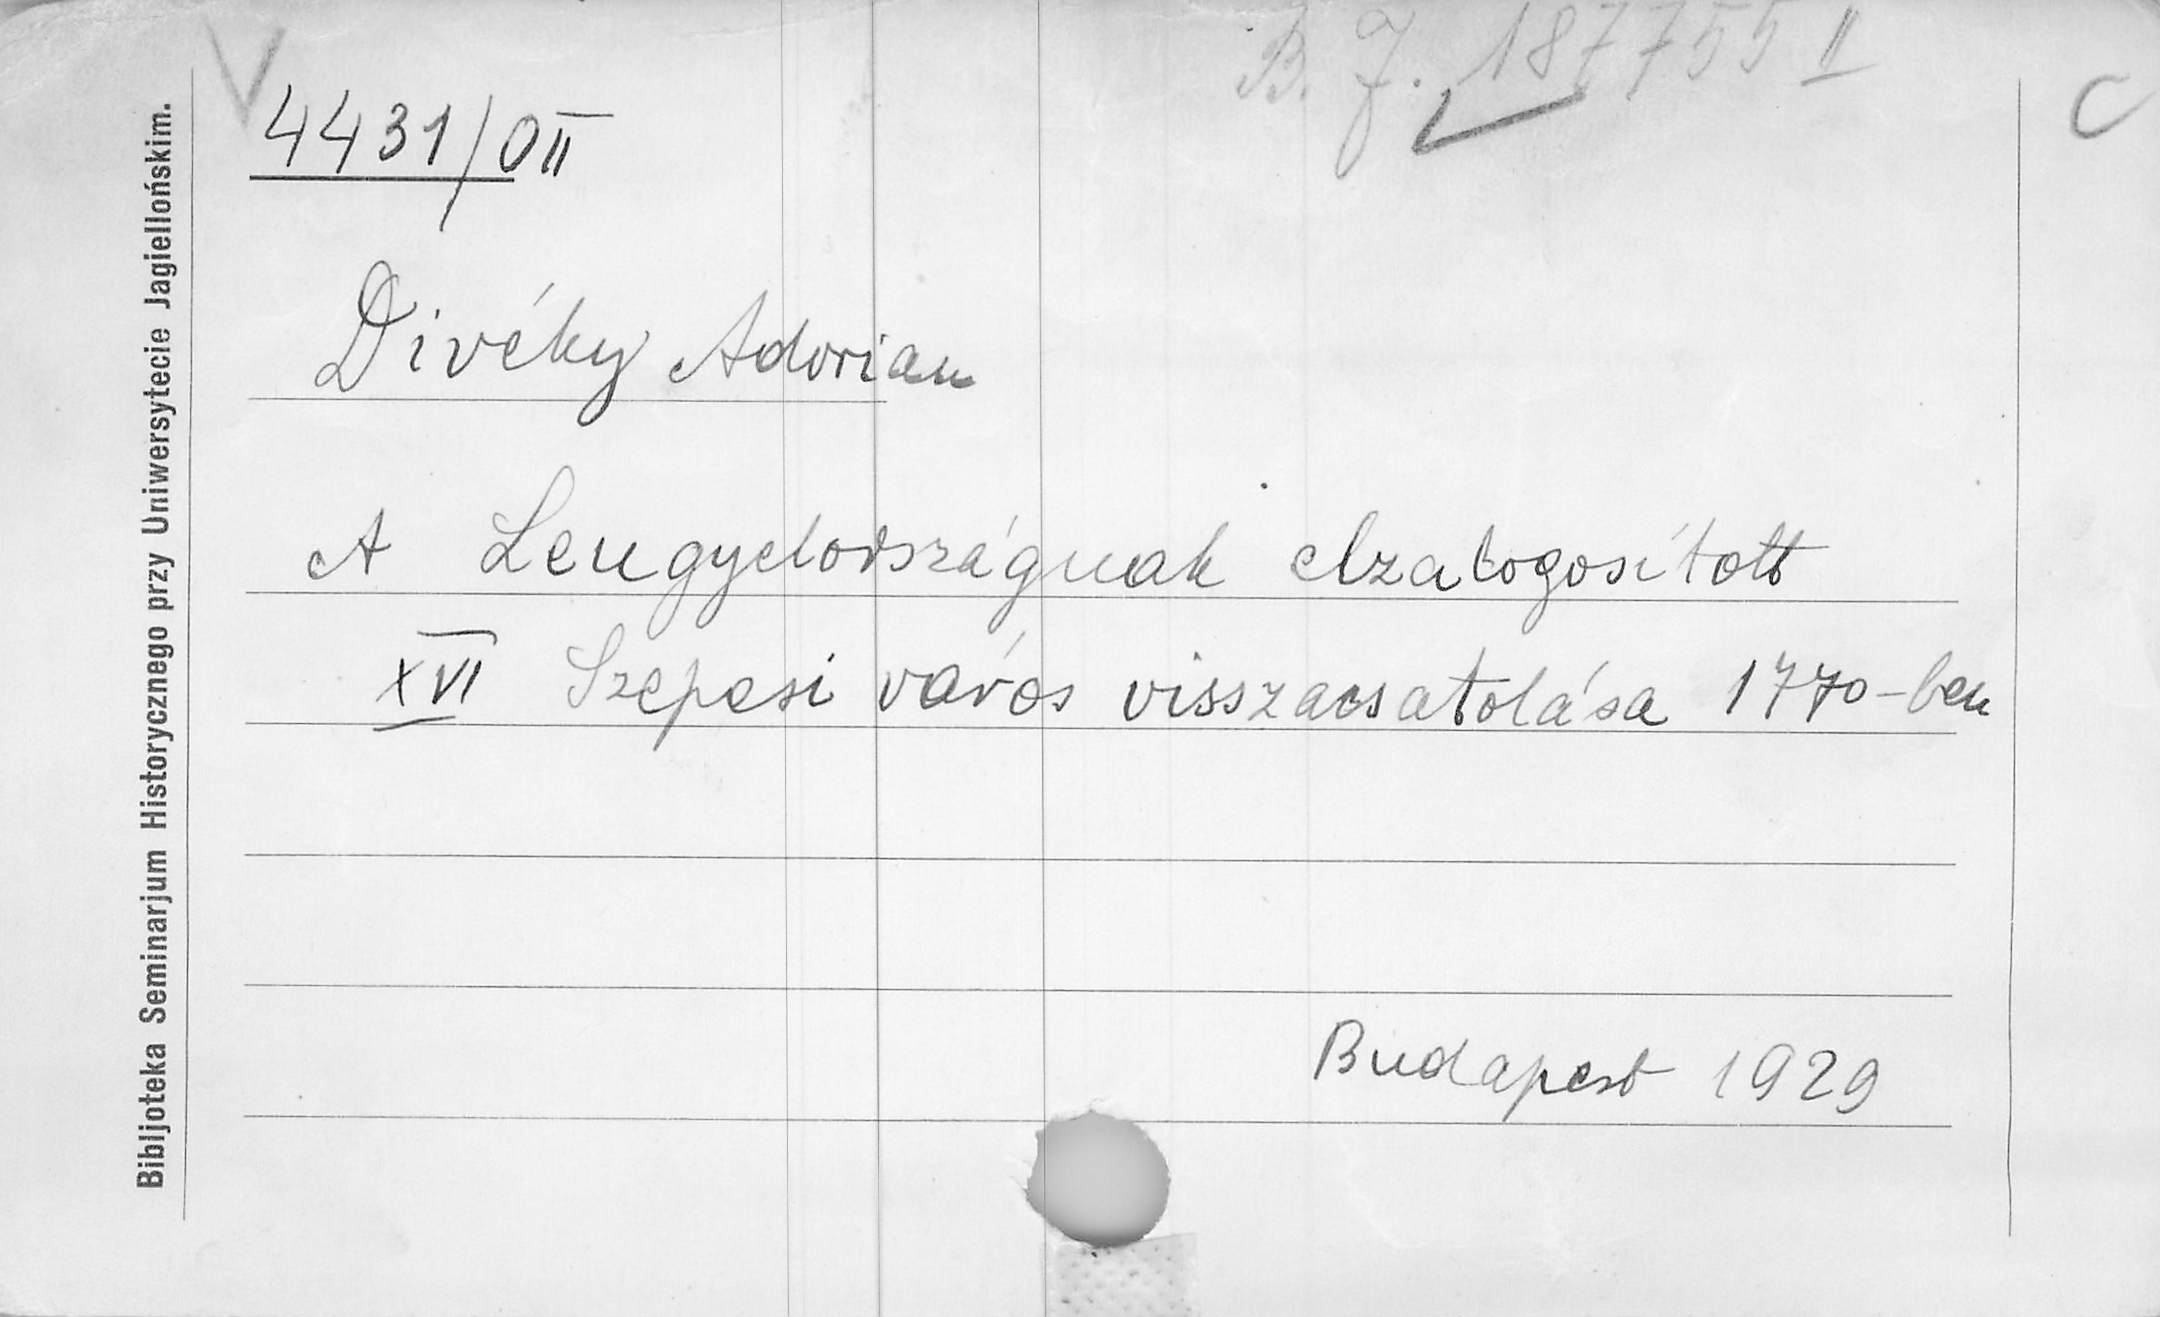 B. J. 187755 II
C
4431/OII
Divéky Adorian
A Lengyelországnak elzatogosított
XVI Szepesi város visszacsatolása 1770-ben
Budapest 1929
Bibljoteka Seminarjum Historycznego przy Uniwersytecie Jagiellońskim.